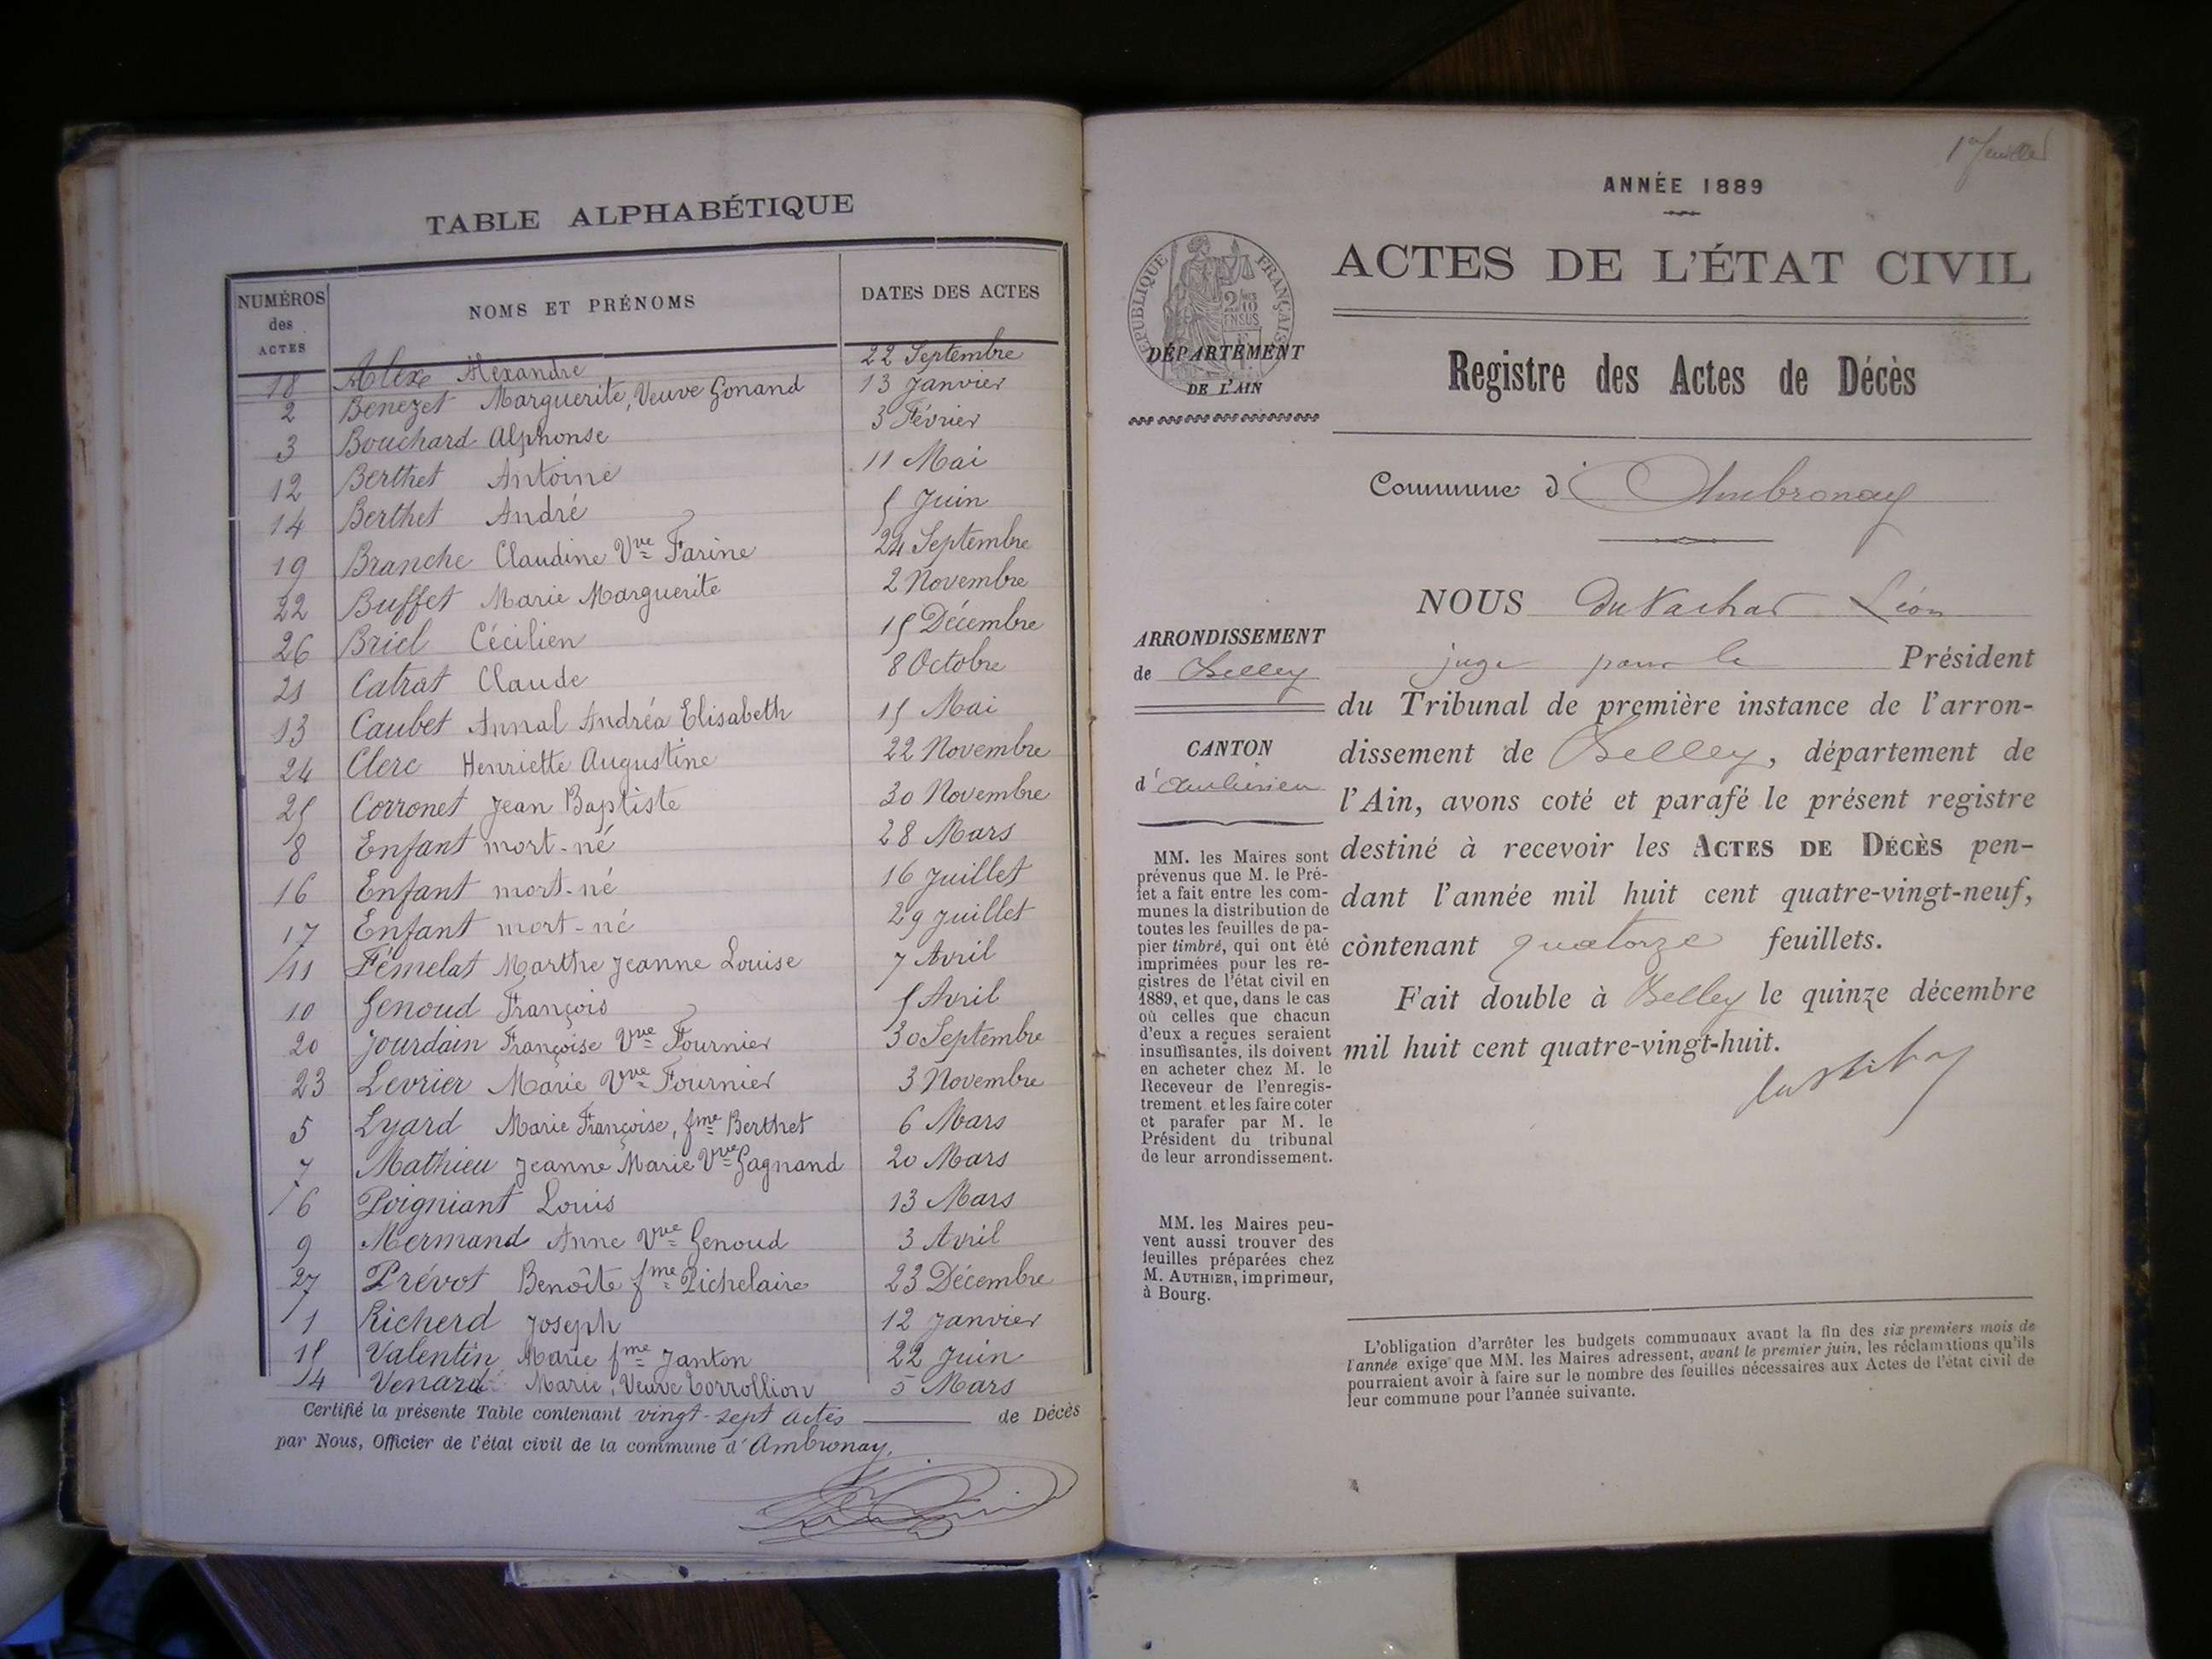 TABLE ALPHABÉTIQUE
NUMÉROS des ACTES NOMS ET PRÉNOMS DATES DES ACTES
18 Alex Alexandre 22 Septembre
2 Benezet Marguerite, Veuve Gonand 13 Janvier
3 Bouchard Alphonse 3 Février
12 Berthet Antoine 11 Mai
14 Berthet André 5 Juin
19 Branche Claudine Vve Farine 24 Septembre
22 Buffet Marie Marguerite 2 Novembre
26 Briel Cécilien 15 Décembre
21 Catrat Claude 8 Octobre
13 Caubet Annal Andréa Elisabeth 15 Mai
24 Clerc Henriette Augustine 22 Novembre
25 Corronet Jean Baptiste 30 Novembre
8 Enfant mort-né 28 Mars
16 Enfant mort-né 16 Juillet
17 Enfant mort-né 29 Juillet
11 Fémelat Marthe Jeanne Louise 7 Avril
10 Genoud François 5 Avril
20 Jourdain Françoise Vve Fournier 30 Septembre
23 Levrier Marie Vve Fournier 3 Novembre
5 Lyard Marie Françoise, fme Berthet 6 Mars
7 Mathieu Jeanne Marie Vve Gagnand 20 Mars
6 Poigniant Louis 13 Mars
9 Mermand Anne Vve Genoud 3 Avril
27 Prévot Benoîte fme Pichelaire 23 Décembre
1 Richerd Joseph 12 Janvier
15 Valentin Marie fme Janton 22 Juin
14 Venard Marie, Veuve Corrollion 5 Mars
Certifié la présente Table contenant vingt-sept actes de Décès
par Nous, Officier de l'état civil de la commune d'Ambronay.
1er feuillet
ANNÉE 1889
ACTES DE L'ÉTAT CIVIL
RÉPUBLIQUE FRANÇAISE
DÉPARTEMENT
DE L'AIN
Registre des Actes de Décès
Commune d'Ambronay
ARRONDISSEMENT
de Belley
CANTON
d'Ambérieu
MM. les Maires sont
prévenus que M. le Pré-
fet a fait entre les com-
munes la distribution de
toutes les feuilles de pa-
pier timbré, qui ont été
imprimées pour les re-
gistres de l'état civil en
1889, et que, dans le cas
où celles que chacun
d'eux a reçues seraient
insuffisantes, ils doivent
en acheter chez M. le
Receveur de l'enregis-
trement et les faire coter
et parafer par M. le
Président du tribunal
de leur arrondissement.
MM. les Maires peu-
vent aussi trouver des
feuilles préparées chez
M. AUTHIER, imprimeur,
à Bourg.
NOUS Du Vachat Léon
juge pour le Président
du Tribunal de première instance de l'arron-
dissement de Belley, département de
l'Ain, avons coté et parafé le présent registre
destiné à recevoir les ACTES DE DÉCÈS pen-
dant l'année mil huit cent quatre-vingt-neuf,
contenant quatorze feuillets.
Fait double à Belley le quinze décembre
mil huit cent quatre-vingt-huit.
L'obligation d'arrêter les budgets communaux avant la fin des six premiers mois de
l'année exige que MM. les Maires adressent, avant le premier juin, les réclamations qu'ils
pourraient avoir à faire sur le nombre des feuilles nécessaires aux Actes de l'état civil de
leur commune pour l'année suivante.